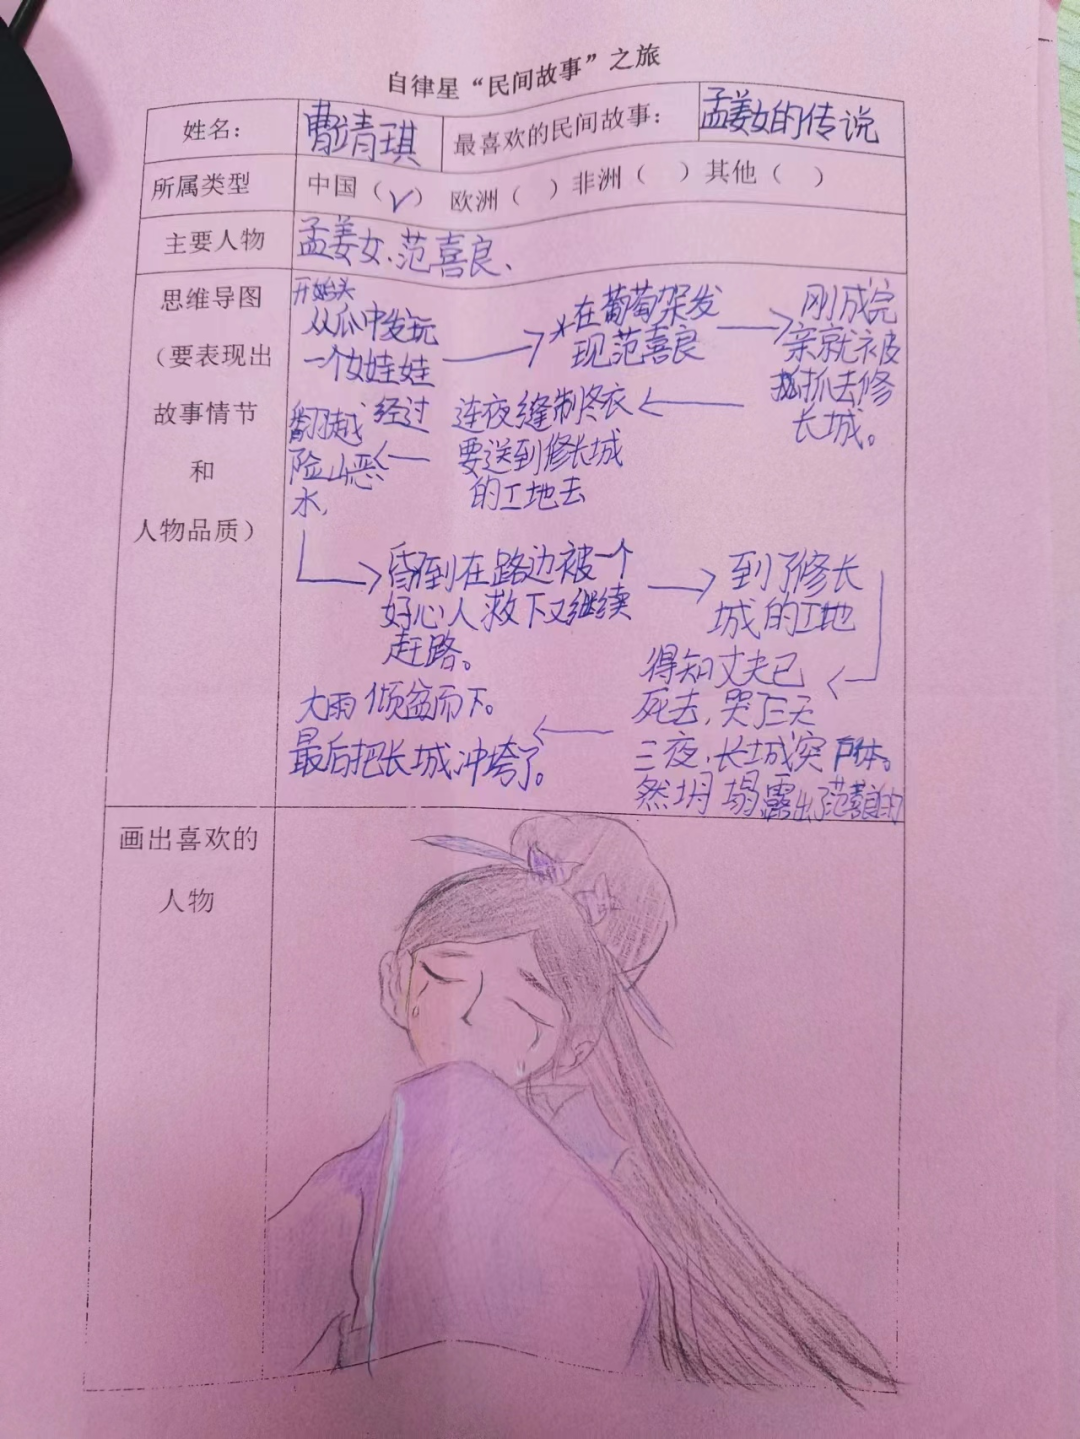 自律星“民间故事”之旅
姓名： 曹靖琪 最喜欢的民间故事： 孟姜女的传说
所属类型 中国（√） 欧洲（ ）非洲（ ）其他（ ）
主要人物 孟姜女、范喜良、
思维导图
（要表现出
故事情节
和
人物品质）
开始头
从瓜中发玩
一个女娃娃
在葡萄架发
现范喜良
刚成完
亲就被
抓去修
长城。
连夜缝制冬衣
要送到修长城
的工地去
经过
翻越
险山恶
水,
昏倒在路边被一个
好心人救下又继续
赶路。
到了修长
城的工地
得知丈夫已
死去,哭了三天
三夜,长城突
然坍塌露出了范喜良的
尸体。
大雨倾盆而下。
最后把长城冲垮了。
画出喜欢的
人物